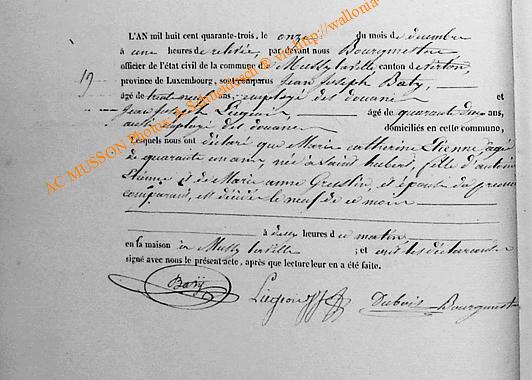 L'AN mil huit cent quarante-trois, le onze du mois de décembre
à une heures de relevée, par devant nous Bourgmestre
officier de l'état civil de la commune de Mussy la ville canton de Virton,
19 province de Luxembourg, sont comparus Jean Joseph Baty,
âgé de trente neuf ans, employé des douanes et
Jean Joseph âgé de quarante deux ans,
aussi employé des douanes domiciliés en cette commune,
Lesquels nous ont déclaré que Marie Catherine Etienne, âgée
de quarante un ans, née à Saint hubert, fille d'antoine
Etienne et de Marie anne et épouse du premier
comparant, est décédée le neuf de ce mois
à deux heures du matin
en sa maison à Mussy la ville ; et ont les déclarants
signé avec nous le présent acte, après que lecture leur en a été faite.
Baty Dubois Bourgmest
AC MUSSON Photos A Schneidesch © via http://wallonia